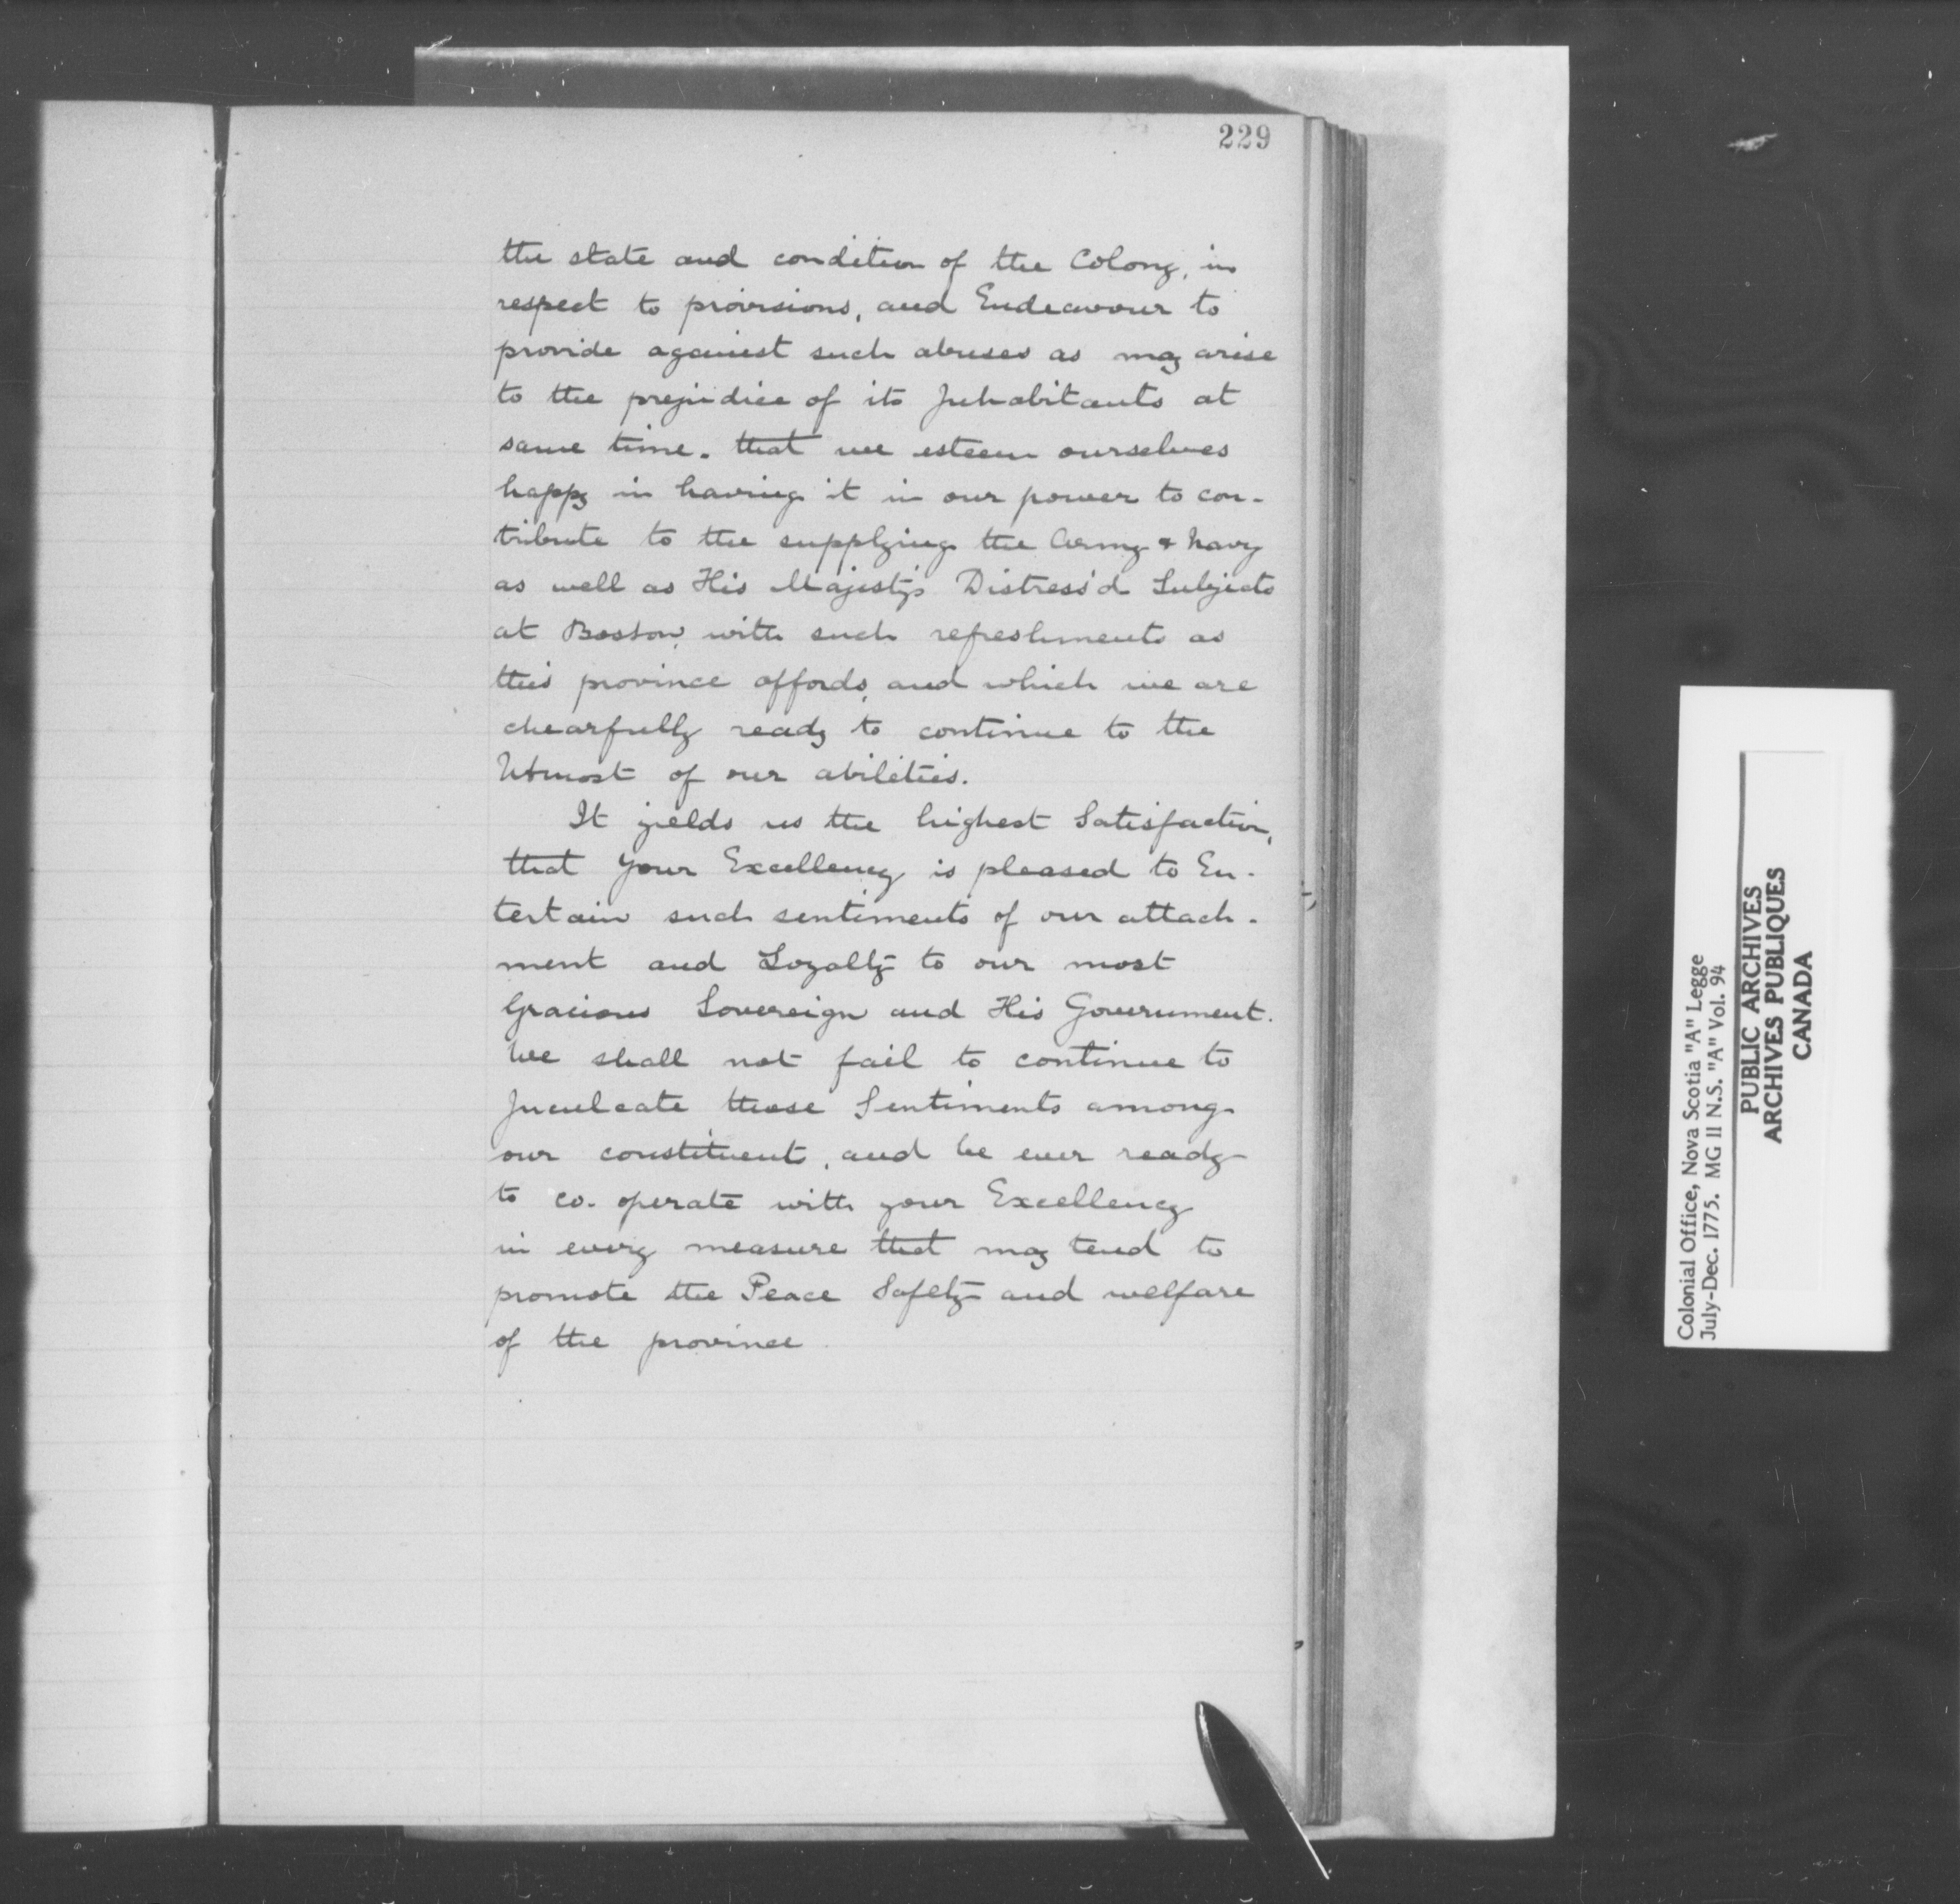 229
the state and condition of the Colony, in
respect to provisions, and Endeavour to
provide against such abuses as may arise
to the prejudice of its Inhabitants at
same time. that we esteem ourselves
happy in having it in our power to con-
tribute to the supplying the Army & Navy
as well as His Majesty's Distress'd Subjects
at Boston, with such refreshments as
this province affords, and which we are
chearfully ready to continue to the
Utmost of our abilities.
It yields us the highest Satisfaction,
that your Excellency is pleased to En-
tertain such sentiments of our attach-
ment and Loyalty to our most
Gracious Sovereign and His Government.
We shall not fail to continue to
Inculcate those Sentiments among
our constituent, and be ever ready
to co-operate with your Excellency
in every measure that may tend to
promote the Peace Safety and welfare
of the province
Colonial Office, Nova Scotia "A" Legge
July-Dec. 1775. MG II N.S. "A" Vol. 94
PUBLIC ARCHIVES
ARCHIVES PUBLIQUES
CANADA